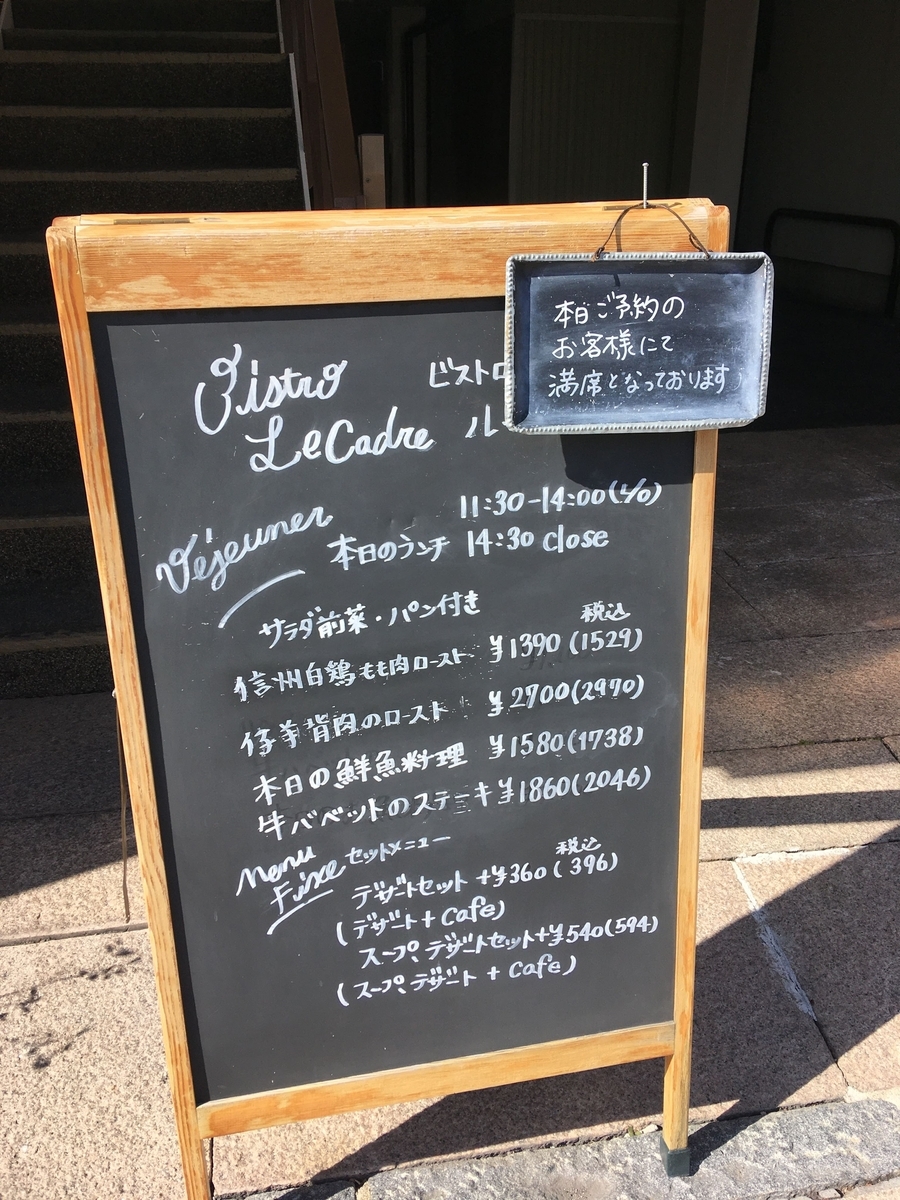 本日ご予約の
お客様にて
満席となっております
Bistro ビストロ
Le Cadre ル
Déjeuner 11:30-14:00(L/O)
本日のランチ 14:30 close
サラダ前菜・パン付き 税込
信州白鶏もも肉ロースト ¥1390(1529)
仔羊背肉のロースト ¥2700(2970)
本日の鮮魚料理 ¥1580(1738)
牛バベットのステーキ ¥1860(2046)
Menu Fixe セットメニュー 税込
デザートセット +¥360(396)
(デザート + Cafe)
スープ、デザートセット+¥540(594)
(スープ、デザート + Cafe)